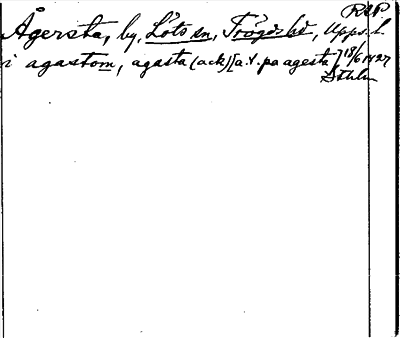 RAP
Ågersta, by, Löts sn, Trögds hd, Upps. l.
i agastom, agasta (ack) [a.t. pa agesta] 18/6 1427
Sthlm